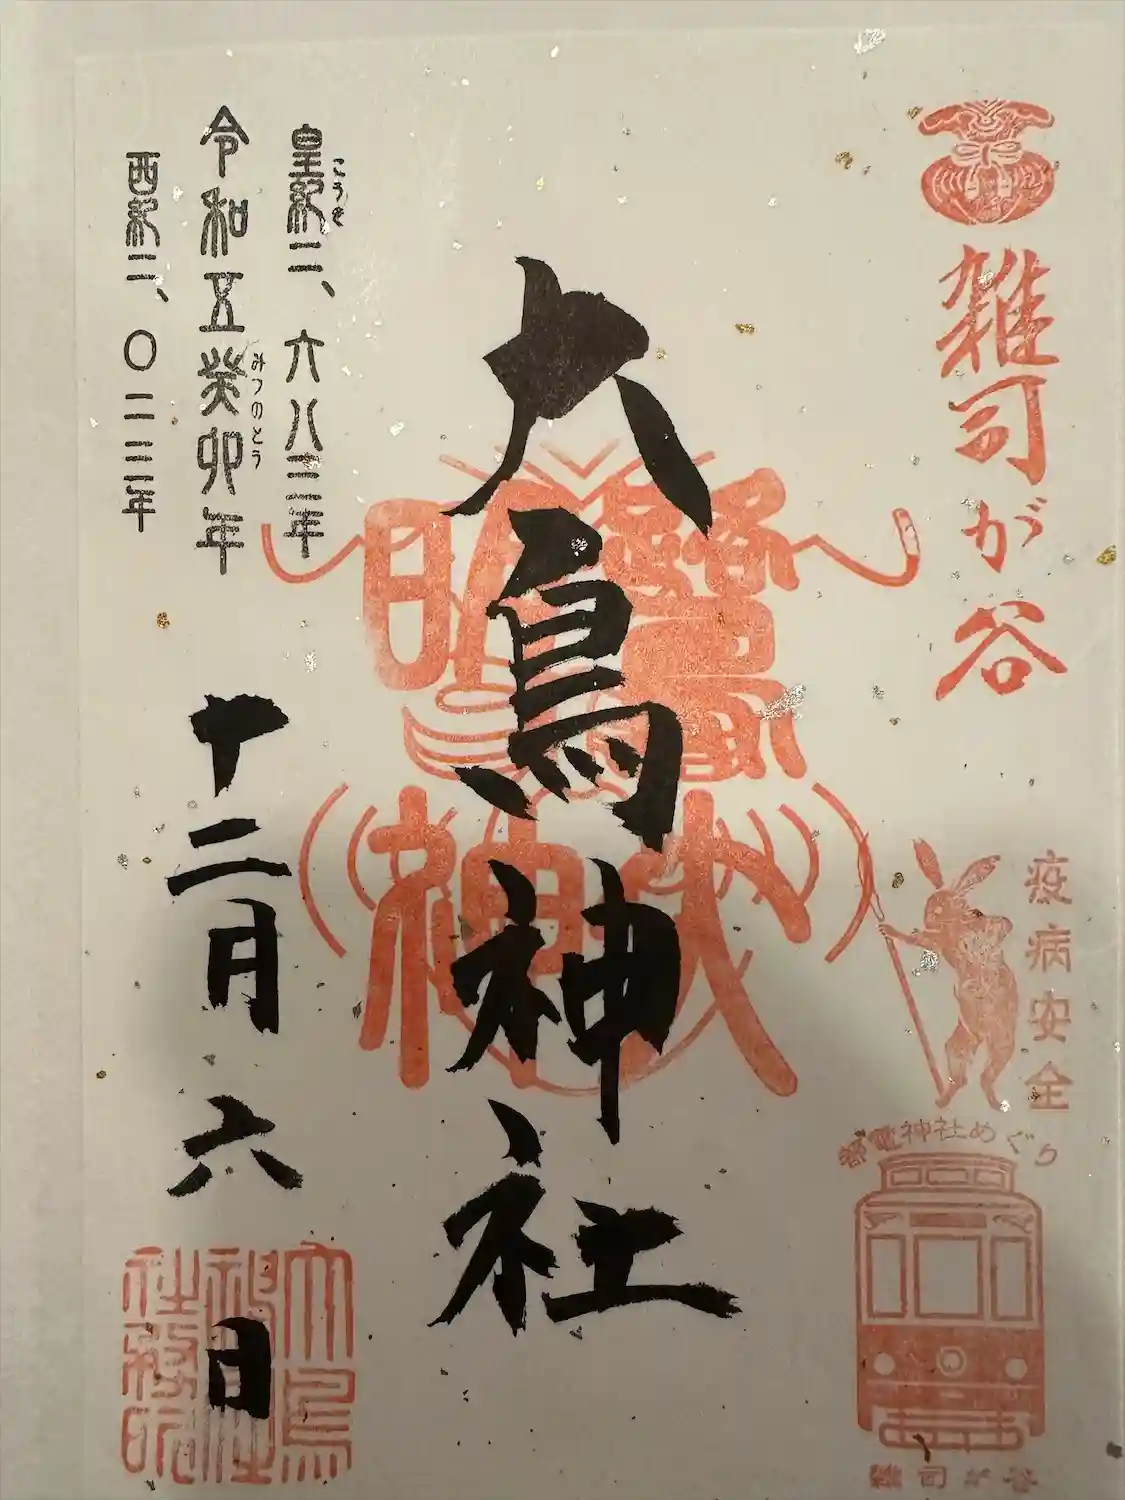 雑司が谷
疫病安全
都電神社めぐり
雑司が谷
大鳥神社
皇紀二、六八三年
こうき
令和五癸卯年
みつのとう
西紀二、〇二三年
十二月六日
大鳥
神社
社務所